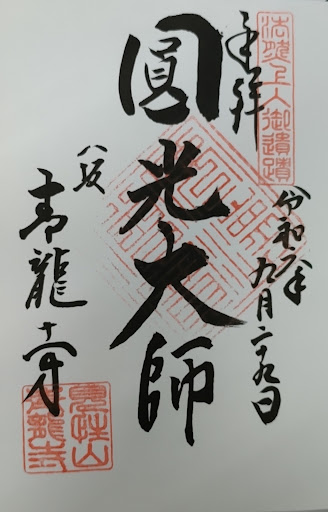 奉拝
法然上人御遺蹟
令和年
九月二十九日
圓光大師
八坂
青龍寺
青龍寺